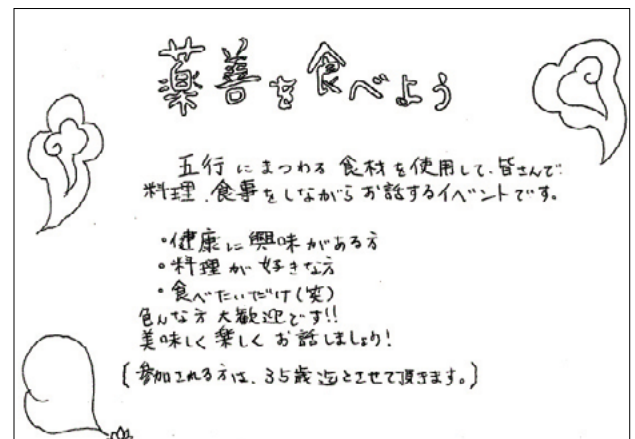 薬善を食べよう
五行にまつわる食材を使用して、皆さんで
料理、食事をしながらお話するイベントです。
・健康に興味がある方
・料理が好きな方
・食べたいだけ(笑)
色んな方大歓迎です!!
美味しく楽しくお話しましょう!
[参加される方は、35歳迄とさせて頂きます。]